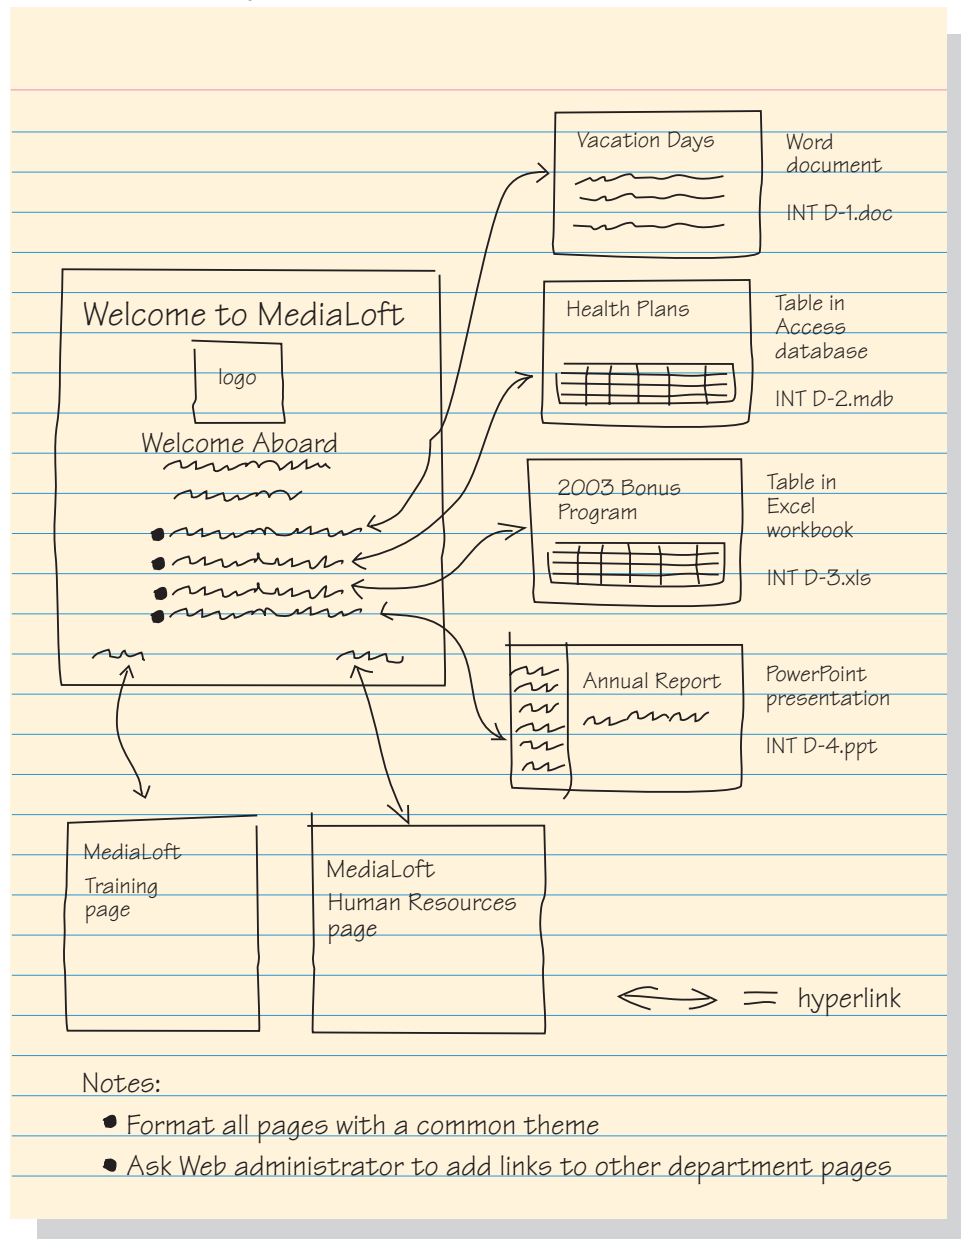 Vacation Days
Word
document
INT D-1.doc
Welcome to MediaLoft
logo
Welcome Aboard
Health Plans
Table in
Access
database
INT D-2.mdb
2003 Bonus
Program
Table in
Excel
workbook
INT D-3.xls
Annual Report
PowerPoint
presentation
INT D-4.ppt
MediaLoft
Training
page
MediaLoft
Human Resources
page
= hyperlink
Notes:
• Format all pages with a common theme
• Ask Web administrator to add links to other department pages